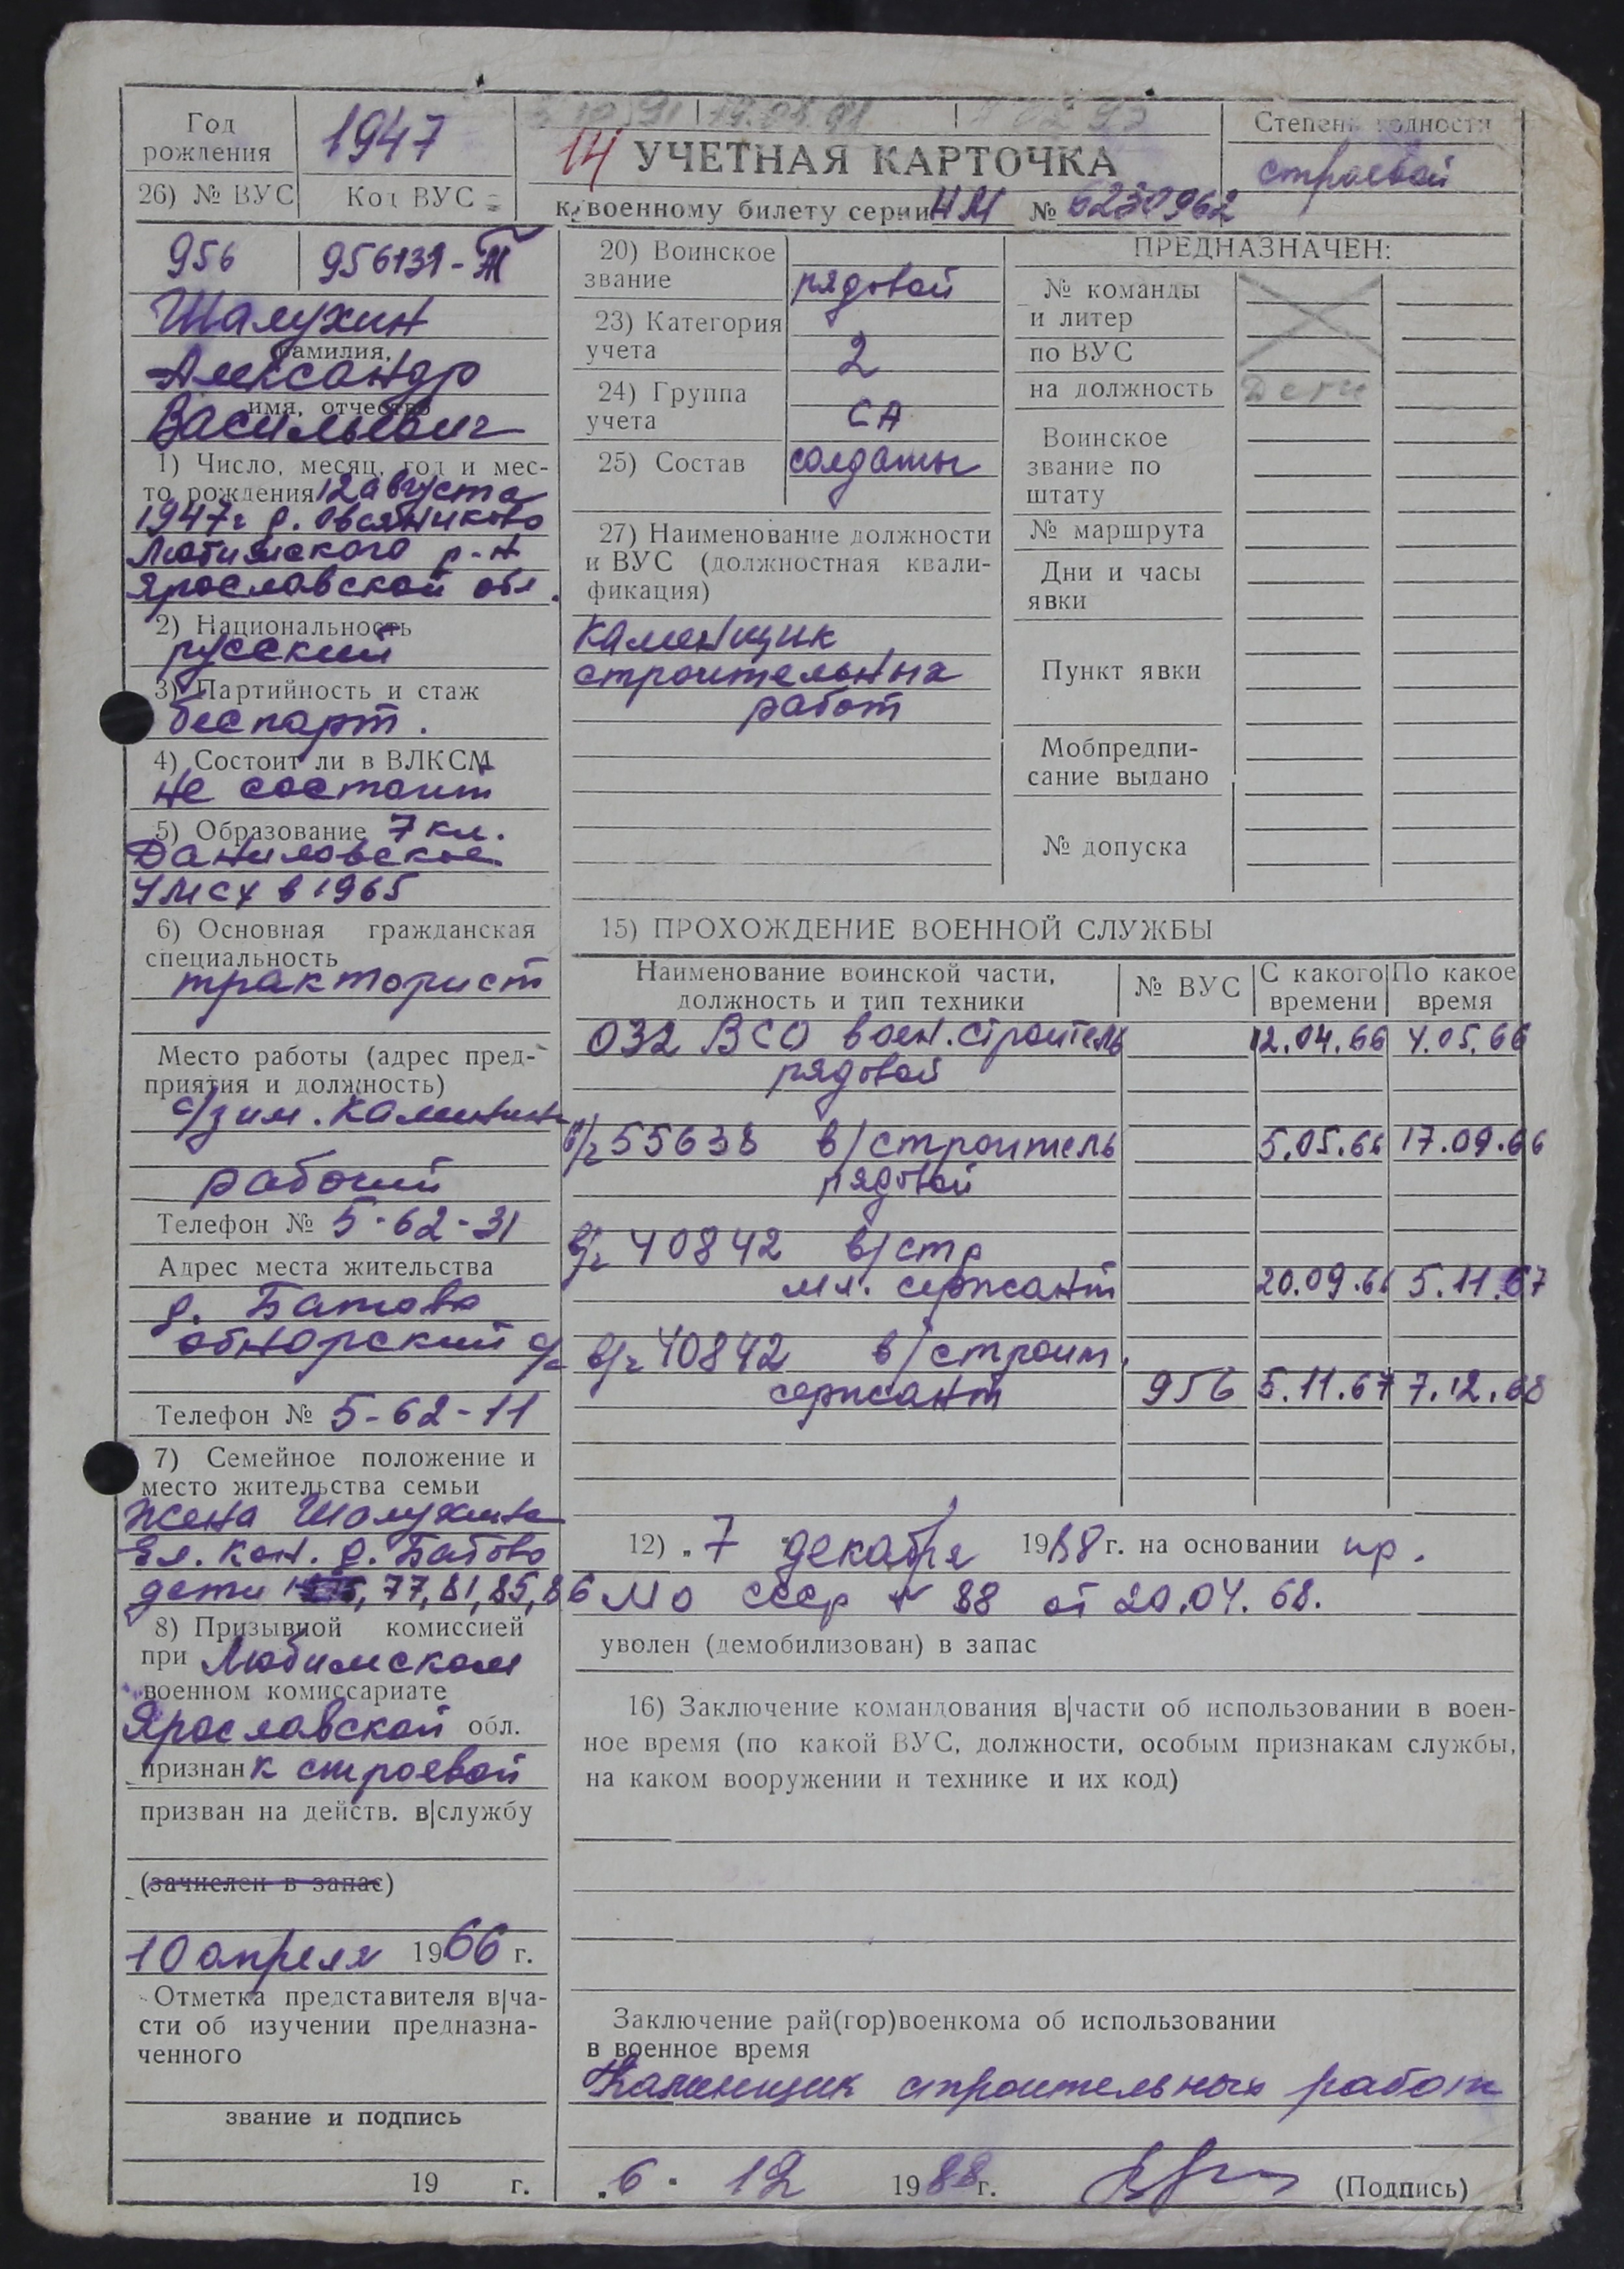 Год рождения
1947
14 УЧЕТНАЯ КАРТОЧКА
Степень годности
строевой
26) № ВУС
Код ВУС
к военному билету серии НМ № 6230962
956
956131-Ж
Шалухин
фамилия,
Александр
имя, отчество
Васильевич
1) Число, месяц, год и мес-
то рождения 12 августа
1947г д. Овсяниково
Любимского р-н
Ярославской обл.
2) Национальность
русский
3) Партийность и стаж
беспарт.
4) Состоит ли в ВЛКСМ
не состоит
5) Образование 7 кл.
Даниловское
УМСХ в 1965
6) Основная гражданская
специальность
тракторист
Место работы (адрес пред-
приятия и должность)
с/з им. Калинина
рабочий
Телефон № 5-62-31
Адрес места жительства
д. Батово
обнорский с/с
Телефон № 5-62-11
7) Семейное положение и
место жительства семьи
жена Шалухина
Ел. Кон. д. Батово
дети 77, 81, 85, 86
8) Призывной комиссией
при Любимском
военном комиссариате
Ярославской обл.
признан к строевой
призван на действ. в|службу
(зачислен в запас)
10 апреля 1966 г.
Отметка представителя в|ча-
сти об изучении предназна-
ченного
звание и подпись
19 г.
20) Воинское
звание рядовой
23) Категория
учета 2
24) Группа
учета СА
25) Состав солдаты
27) Наименование должности
и ВУС (должностная квали-
фикация)
каменщик
строительных
работ
ПРЕДНАЗНАЧЕН:
№ команды
и литер
по ВУС
на должность
Воинское
звание по
штату
№ маршрута
Дни и часы
явки
Пункт явки
Мобпредпи-
сание выдано
№ допуска
15) ПРОХОЖДЕНИЕ ВОЕННОЙ СЛУЖБЫ
Наименование воинской части,
должность и тип техники
№ ВУС
С какого
времени
По какое
время
032 ВСО воен. строитель 12.04.66 4.05.66
рядовой
в/ч 55638 в/строитель 5.05.66 17.09.66
рядовой
в/ч 40842 в/стр
мл. сержант 20.09.66 5.11.67
в/ч 40842 в/строит.
сержант 956 5.11.67 7.12.68
12) „7 декабря 1968 г. на основании пр.
МО СССР № 88 от 20.04.68.
уволен (демобилизован) в запас
16) Заключение командования в|части об использовании в воен-
ное время (по какой ВУС, должности, особым признакам службы,
на каком вооружении и технике и их код)
Заключение рай(гор)военкома об использовании
в военное время
Каменщик строительных работ
„6" 12 1988 г. (Подпись)